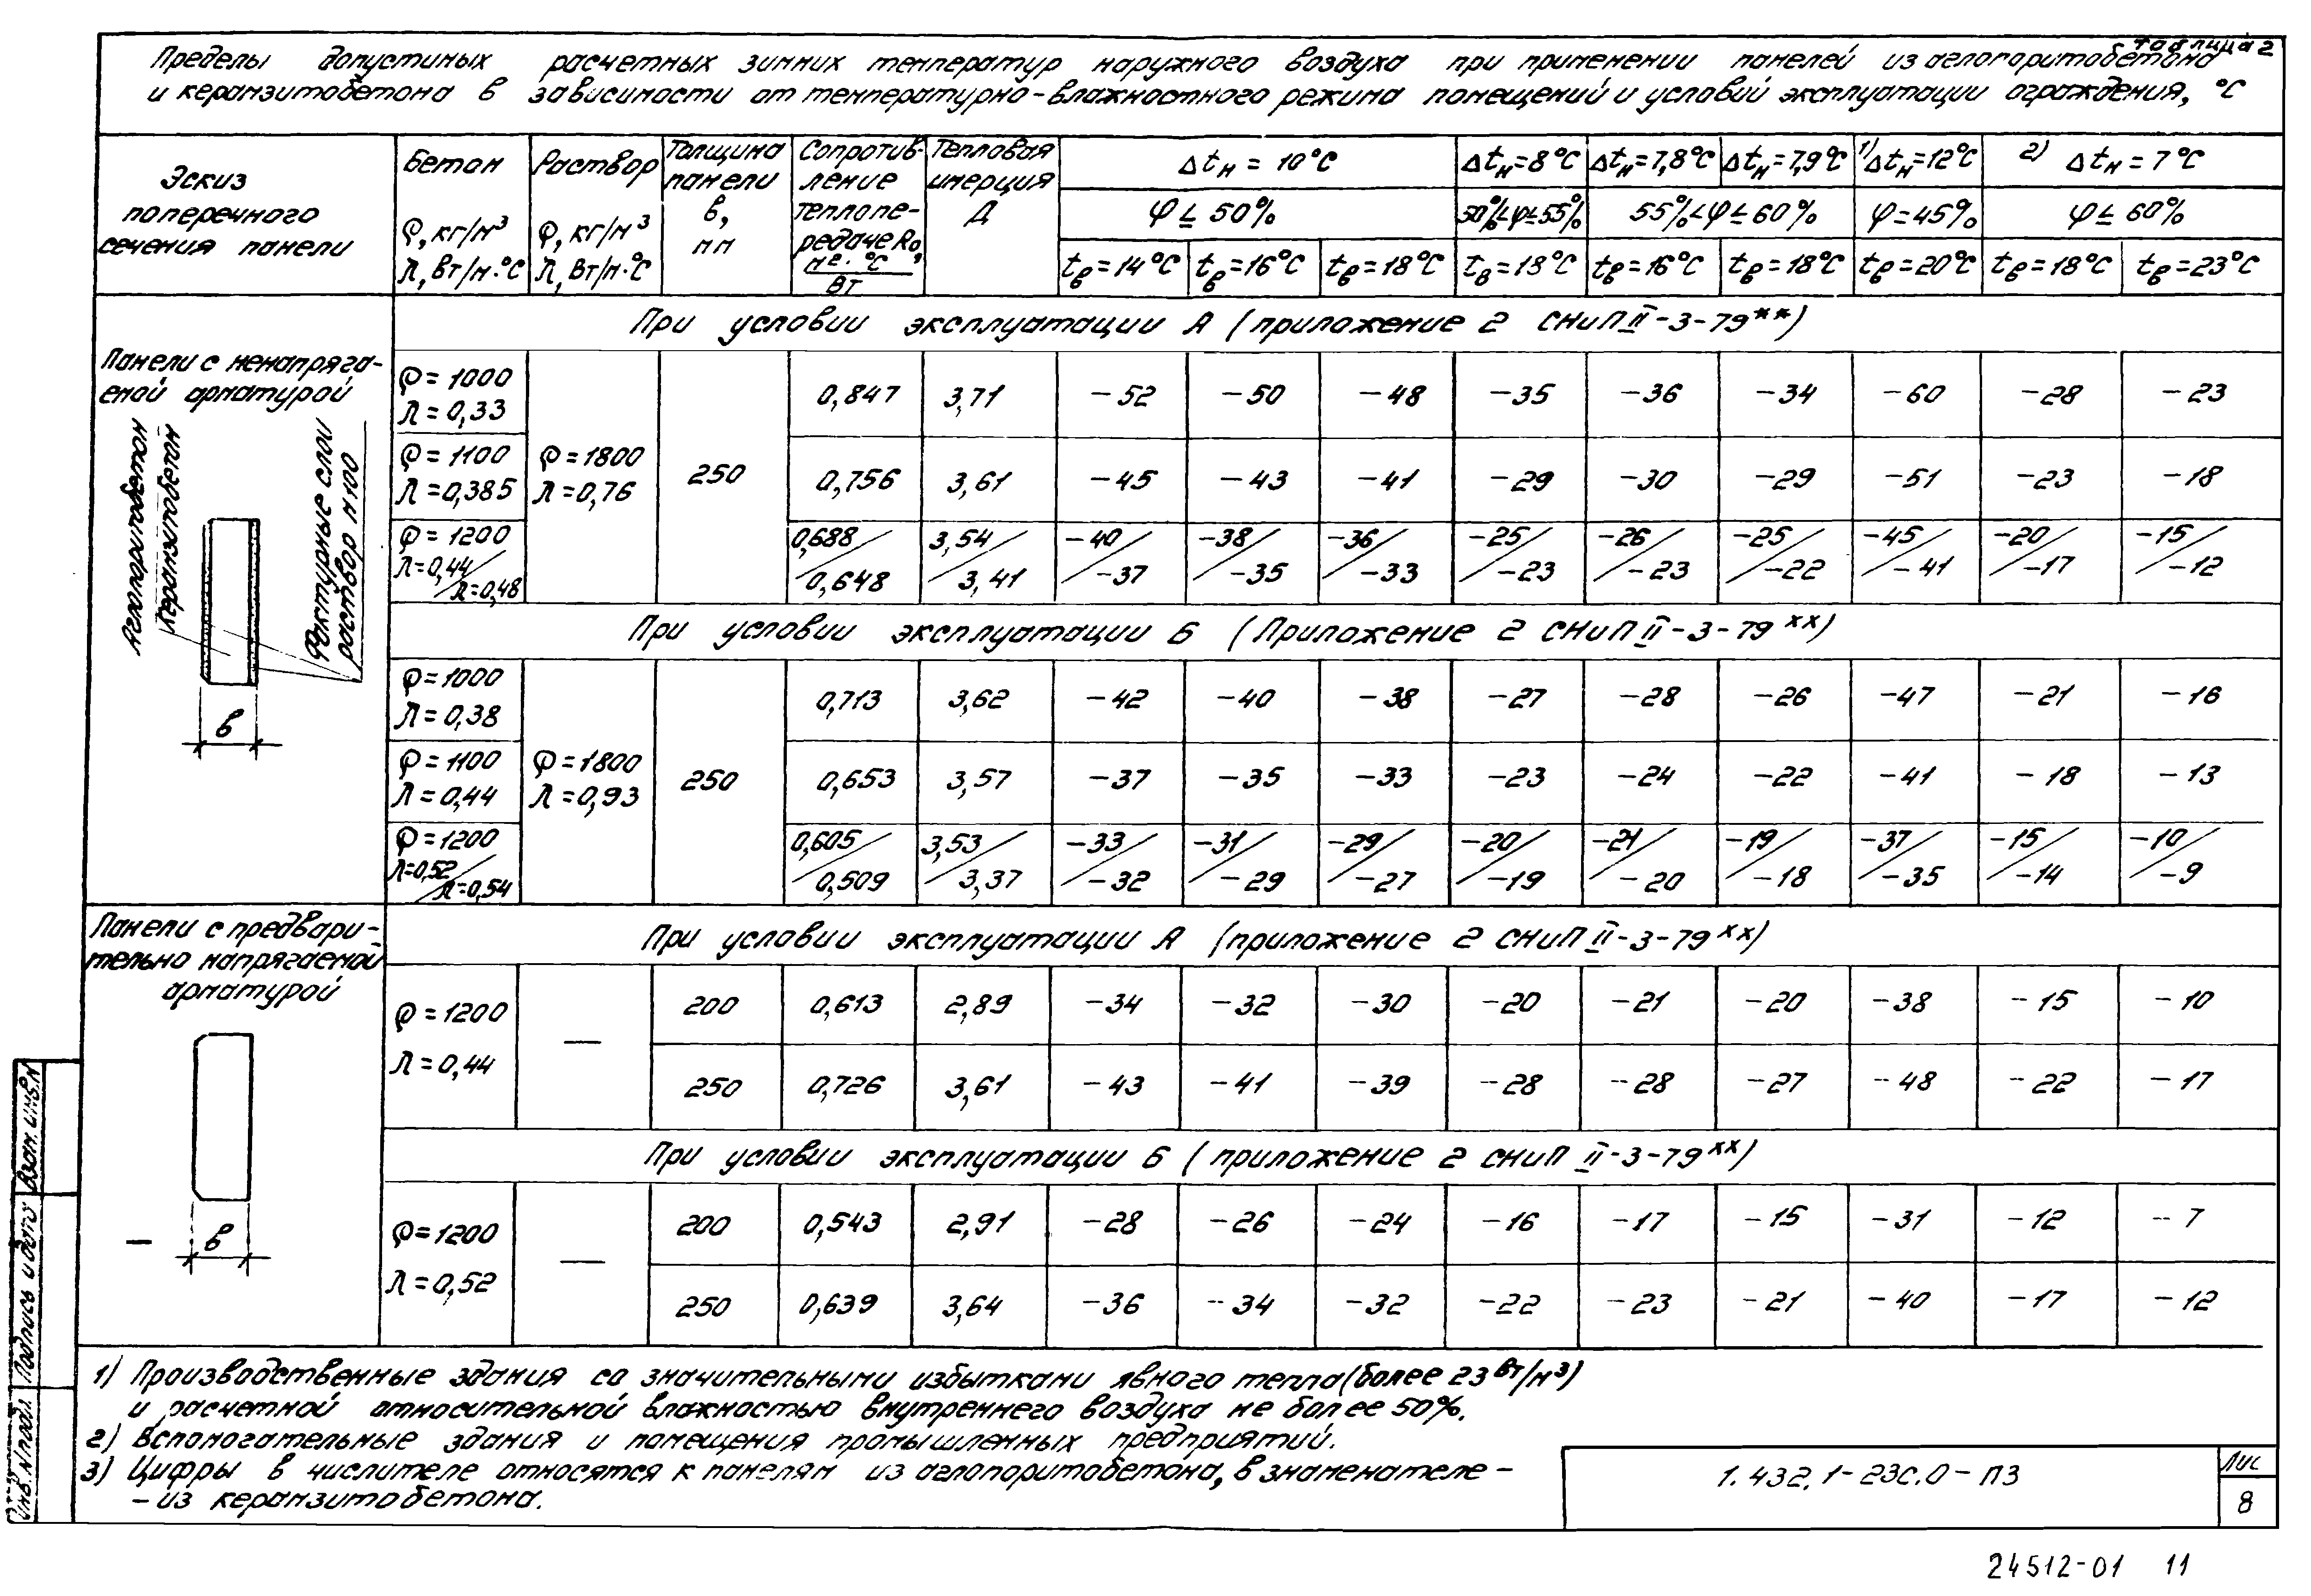 Таблица 2
Пределы допустимых расчетных зимних температур наружного воздуха при применении панелей из аглопоритобетона
и керамзитобетона в зависимости от температурно-влажностного режима помещений и условий эксплуатации ограждения, °С
Эскиз поперечного сечения панели
Бетон ρ, кг/м³ λ, Вт/м·°С
Раствор ρ, кг/м³ λ, Вт/м·°С
Толщина панели в, мм
Сопротивление теплопередаче R₀, м²·°С/Вт
Тепловая инерция Д
Δtн = 10°С Δtн=8°С Δtн=7,8°С Δtн=7,9°С 1) Δtн=12°С 2) Δtн = 7°С
φ ≤ 50% 50%<φ≤55% 55%<φ≤60% φ=45% φ≤ 60%
tв=14°С tв=16°С tв=18°С tв=18°С tв=16°С tв=18°С tв=20°С tв=18°С tв=23°С
Панели с ненапряга-
емой арматурой
Аглопоритобетон
Керамзитобетон
Фактурные слои
раствор М100
в
При условии эксплуатации А (приложение 2 СНиП II-3-79**)
ρ=1000 λ=0,33 0,847 3,71 -52 -50 -48 -35 -36 -34 -60 -28 -23
ρ=1100 λ=0,385 ρ=1800 λ=0,76 250 0,756 3,61 -45 -43 -41 -29 -30 -29 -51 -23 -18
ρ=1200 λ=0,44/λ=0,48 0,688/0,648 3,54/3,41 -40/-37 -38/-35 -36/-33 -25/-23 -26/-23 -25/-22 -45/-41 -20/-17 -15/-12
При условии эксплуатации Б (Приложение 2 СНиП II-3-79хх)
ρ=1000 λ=0,38 0,713 3,62 -42 -40 -38 -27 -28 -26 -47 -21 -16
ρ=1100 λ=0,44 ρ=1800 λ=0,93 250 0,653 3,57 -37 -35 -33 -23 -24 -22 -41 -18 -13
ρ=1200 λ=0,52/λ=0,54 0,605/0,509 3,53/3,37 -33/-32 -31/-29 -29/-27 -20/-19 -21/-20 -19/-18 -37/-35 -15/-14 -10/-9
Панели с предвари-
тельно напрягаемой
арматурой
в
При условии эксплуатации А (приложение 2 СНиП II-3-79хх)
ρ=1200 λ=0,44 — 200 0,613 2,89 -34 -32 -30 -20 -21 -20 -38 -15 -10
250 0,726 3,61 -43 -41 -39 -28 -28 -27 -48 -22 -17
При условии эксплуатации Б (приложение 2 СНиП II-3-79хх)
ρ=1200 λ=0,52 — 200 0,543 2,91 -28 -26 -24 -16 -17 -15 -31 -12 -7
250 0,639 3,64 -36 -34 -32 -22 -23 -21 -40 -17 -12
1) Производственные здания со значительными избытками явного тепла (более 23 Вт/м³)
и расчетной относительной влажностью внутреннего воздуха не более 50%.
2) Вспомогательные здания и помещения промышленных предприятий.
3) Цифры в числителе относятся к панелям из аглопоритобетона, в знаменателе -
- из керамзитобетона.
Инв. № подл Подпись и дата Взам. инв. №
1.432.1-23с.0-ПЗ
Лис
8
24512-01 11